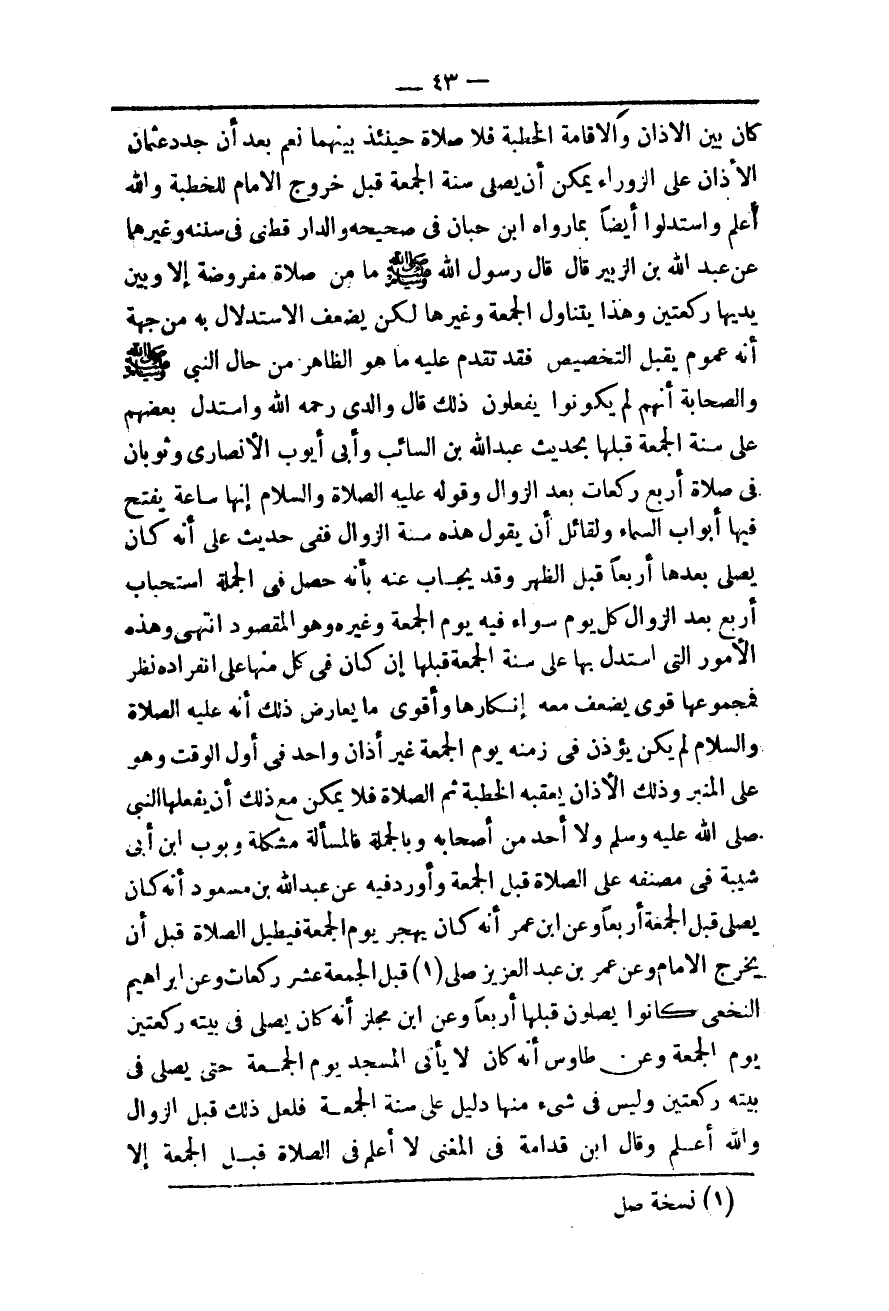 — ٤٣ —
كان بين الاذان والاقامة الخطبة فلا صلاة حينئذ بينهما نعم بعد أن جدد عثمان
الأذان على الزوراء يمكن أن يصلى سنة الجمعة قبل خروج الامام للخطبة والله
أعلم واستدلوا أيضاً بما رواه ابن حبان فى صحيحه والدار قطنى فى سننه وغيرهما
عن عبد الله بن الزبير قال قال رسول الله ﷺ ما من صلاة مفروضة إلا وبين
يديها ركعتين وهذا يتناول الجمعة وغيرها لكن يضعف الاستدلال به من جهة
أنه عموم يقبل التخصيص فقد تقدم عليه ما هو الظاهر من حال النبي ﷺ
والصحابة أنهم لم يكونوا يفعلون ذلك قال والدى رحمه الله واستدل بعضهم
على سنة الجمعة قبلها بحديث عبدالله بن السائب وأبى أيوب الأنصارى وثوبان
فى صلاة أربع ركعات بعد الزوال وقوله عليه الصلاة والسلام إنها ساعة يفتح
فيها أبواب السماء ولقائل أن يقول هذه سنة الزوال ففى حديث على أنه كان
يصلى بعدها أربعاً قبل الظهر وقد يجاب عنه بأنه حصل فى الجملة استحباب
أربع بعد الزوال كل يوم سواء فيه يوم الجمعة وغيره وهو المقصود انتهى وهذه
الأمور التى استدل بها على سنة الجمعة قبلها إن كان فى كل منها على انفراده نظر
فمجموعها قوى يضعف معه إنكارها وأقوى ما يعارض ذلك أنه عليه الصلاة
والسلام لم يكن يؤذن فى زمنه يوم الجمعة غير أذان واحد فى أول الوقت وهو
على المنبر وذلك الأذان يعقبه الخطبة ثم الصلاة فلا يمكن مع ذلك أن يفعلها النبى
صلى الله عليه وسلم ولا أحد من أصحابه وبالجملة فالمسألة مشكلة وبوب ابن أبى
شيبة فى مصنفه على الصلاة قبل الجمعة وأورد فيه عن عبدالله بن مسعود أنه كان
يصلى قبل الجمعة أربعاً وعن ابن عمر أنه كان يهجر يوم الجمعة فيطيل الصلاة قبل أن
يخرج الامام وعن عمر بن عبد العزيز صلى (١) قبل الجمعة عشر ركعات وعن ابراهيم
النخعى كانوا يصلون قبلها أربعاً وعن ابن مجلز أنه كان يصلى فى بيته ركعتين
يوم الجمعة وعن طاوس أنه كان لا يأتى المسجد يوم الجمعة حتى يصلى فى
بيته ركعتين وليس فى شىء منها دليل على سنة الجمعة فلعل ذلك قبل الزوال
والله أعلم وقال ابن قدامة فى المغنى لا أعلم فى الصلاة قبل الجمعة إلا
(١) نسخة صل